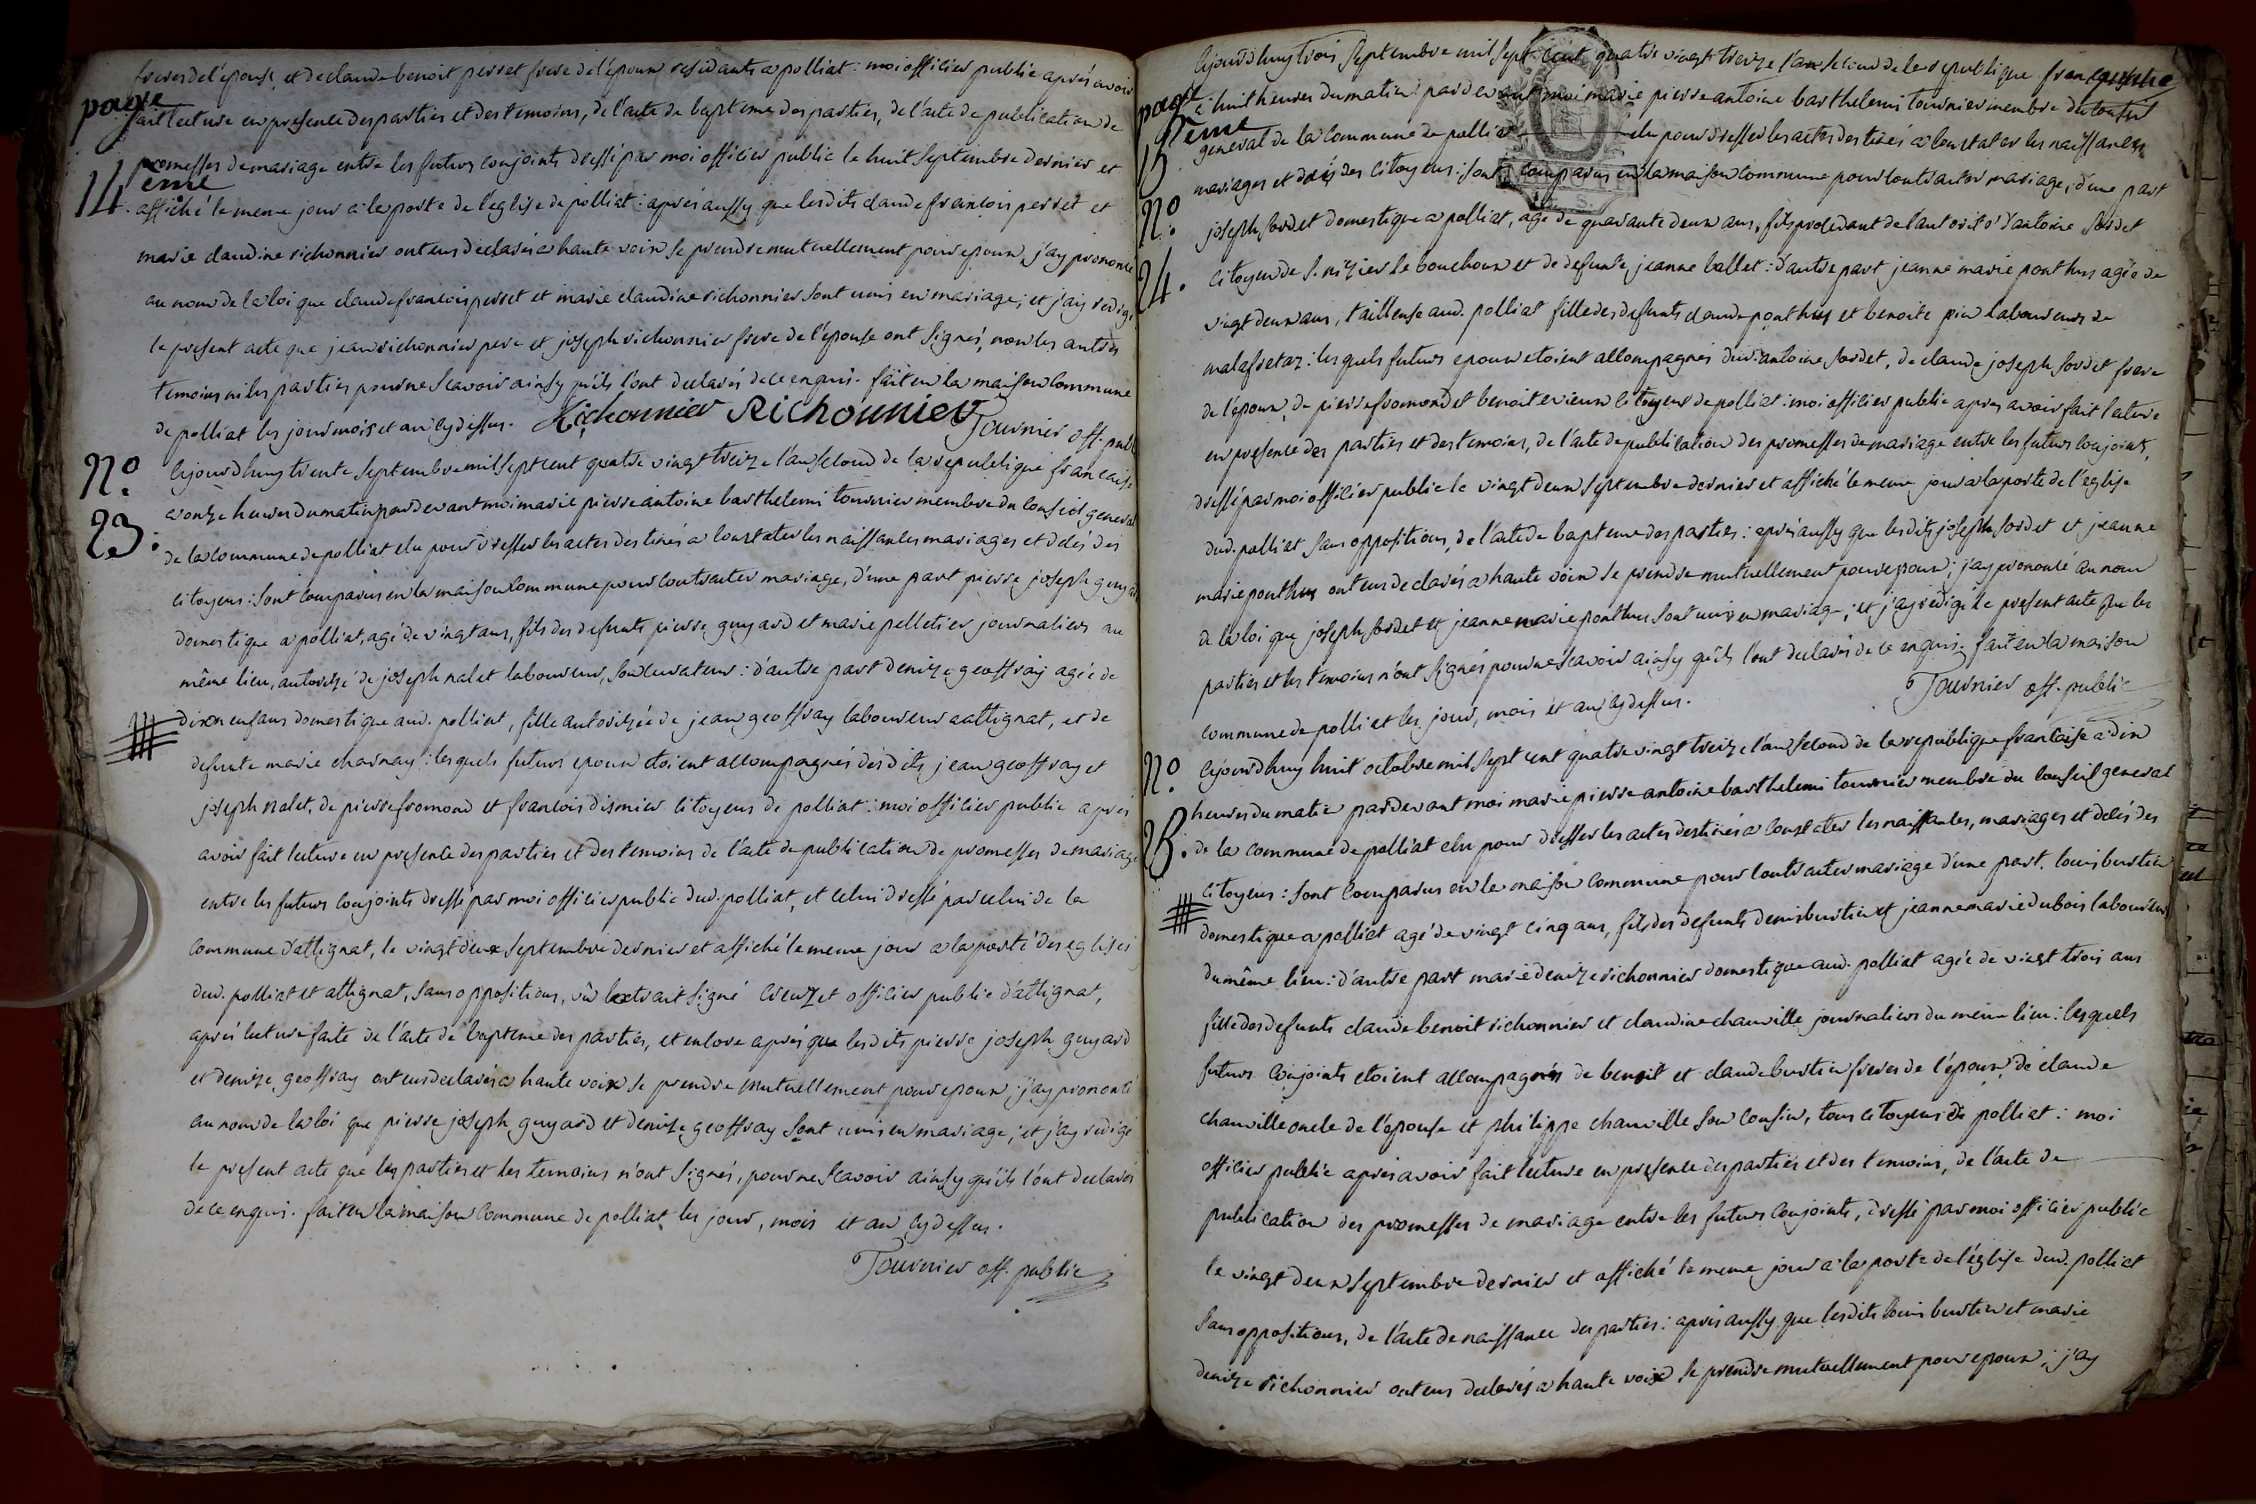 freres de l'épouse, et de claude benoit perret frere de l'époux residants a polliat : moi officier public aprés avoir
page
fait lecture en presence des parties et des temoins, de l'acte de bapteme des parties, de l'acte de publication de
14.eme
promesses de mariage entre les futurs conjoints dressé par moi officier public le huit septembre dernier et
affiché le meme jour a la porte de l'eglise de polliat : aprés aussy que lesdits claude francois perret et
marie claudine richonnier ont eus declarés a haute voix se prendre mutuellement pour epoux, j'ay prononcé
au nom de la loi que claude francois perret et marie claudine richonnier sont unis en mariage ; et j'ay redigé
le present acte que jean richonnier pere et joseph richonnier frere de l'épouse ont signés, non les autres
temoins ni les parties pour ne scavoir ainsy qu'ils l'ont declarés de ce enquis. fait en la maison commune
de polliat les jour mois et an cy dessus. Richonnier Richonnier
Tournier off. public
N.º 23.
Cejourd'huy trente septembre mil sept cent quatre vingt treize l'an second de la republique francaise
a onze heures du matin pardevant moi marie pierre antoine barthelemi tournier membre du conseil general
de la commune de polliat elu pour dresser les actes destinés a constater les naissances mariages et décés des
citoyens : sont comparus en la maison commune pour contracter mariage, d'une part pierre joseph guyard
domestique a polliat, agé de vingt ans, fils des defunts pierre guyard et marie pelletier journaliers au
même lieu, autorizé de joseph nalet laboureur, son curateur : d'autre part denize geoffray agée de
dix neuf ans domestique aud. polliat, fille autorizée de jean geoffray laboureur a attignat, et de
defunte marie charnay : lesquels futurs epoux etoient accompagnés desdits jean geoffray et
joseph nalet, de pierre fromond et francois dismier citoyens de polliat : moi officier public aprés
avoir fait lecture en presence des parties et des temoins de l'acte de publication de promesses de mariage
entre les futurs conjoints dressé par moi officier public dud. polliat, et celui dressé par celui de la
commune d'attignat, le vingt deux septembre dernier et affiché le meme jour a la porte des eglises
dud. polliat et attignat, sans oppositions, vû l'extrait signé creuzet officier public d'attignat,
aprés lecture faite de l'acte de bapteme des parties, et encore aprés que lesdits pierre joseph guyard
et denize geoffray ont eus declarés a haute voix se prendre mutuellement pour epoux ; j'ay prononcé
au nom de la loi que pierre joseph guyard et denize geoffray sont unis en mariage ; et j'ay redigé
le present acte que les parties et les temoins n'ont signés, pour ne scavoir ainsy qu'ils l'ont declarés
de ce enquis. fait en la maison commune de polliat les jour, mois et an cy dessus.
Tournier off. public
page 15.eme
Cejourd'huy trois septembre mil sept cent quatre vingt treize l'an second de la republique francaise
a huit heures du matin pardevant moi marie pierre antoine barthelemi tournier membre du conseil
general de la commune de polliat elu pour dresser les actes destinés a constater les naissances
N.º 24.
mariages et décés des citoyens : sont comparus en la maison commune pour contracter mariage, d'une part
joseph sordet domestique a polliat, agé de quarante deux ans, fils procedant de l'autorité d'antoine sordet
citoyen de s. nizier le bouchoux et de defunte jeanne ballet : d'autre part jeanne marie ponthus agée de
vingt deux ans, tailleuse aud. polliat fille des defunts claude ponthus et benoite pin laboureurs de
malafretaz : lesquels futurs epoux etoient accompagnés dud. antoine sordet, de claude joseph sordet frere
de l'époux, de pierre fromond et benoit citoyens de polliat : moi officier public apres avoir fait lecture
en presence des parties et des temoins, de l'acte de publication des promesses de mariage entre les futurs conjoints,
dressé par moi officier public le vingt deux septembre dernier et affiché le meme jour a la porte de l'eglise
dud. polliat sans oppositions, de l'acte de bapteme des parties : aprés aussy que lesdits joseph sordet et jeanne
marie ponthus ont eus declarés a haute voix se prendre mutuellement pour epoux ; j'ay prononcé au nom
de la loi que joseph sordet et jeanne marie ponthus sont unis en mariage ; et j'ay redigé le present acte que les
parties et les temoins n'ont signés pour ne scavoir ainsy qu'ils l'ont declarés de ce enquis. fait en la maison
commune de polliat les jour, mois et an cy dessus.
Tournier off. public
N.º 25.
Cejourd'huy huit octobre mil sept cent quatre vingt treize l'an second de la republique francaise a dix
heures du matin pardevant moi marie pierre antoine barthelemi tournier membre du conseil general
de la commune de polliat elu pour dresser les actes destinés a constater les naissances, mariages et décés des
citoyens : sont comparus en la maison commune pour contracter mariage d'une part. louis burtin
domestique a polliat agé de vingt cinq ans, fils des defunts denis burtin et jeanne marie dubois laboureurs
du même lieu : d'autre part marie denize richonnier domestique aud. polliat agée de vingt trois ans
fille des defunts claude benoit richonnier et claudine chanville journaliers du meme lieu : lesquels
futurs conjoints etoient accompagnés de benoit et claude burtin freres de l'époux, de claude
chanville oncle de l'épouse et philippe chanville son cousin, tous citoyens de polliat : moi
officier public aprés avoir fait lecture en presence des parties et des temoins, de l'acte de
publication des promesses de mariage entre les futurs conjoints, dressé par moi officier public
le vingt deux septembre dernier et affiché le meme jour a la porte de l'église dud. polliat
sans oppositions, de l'acte de naissance des parties : aprés aussy que lesdits louis burtin et marie
denize richonnier ont eus declarés a haute voix se prendre mutuellement pour epoux ; j'ay